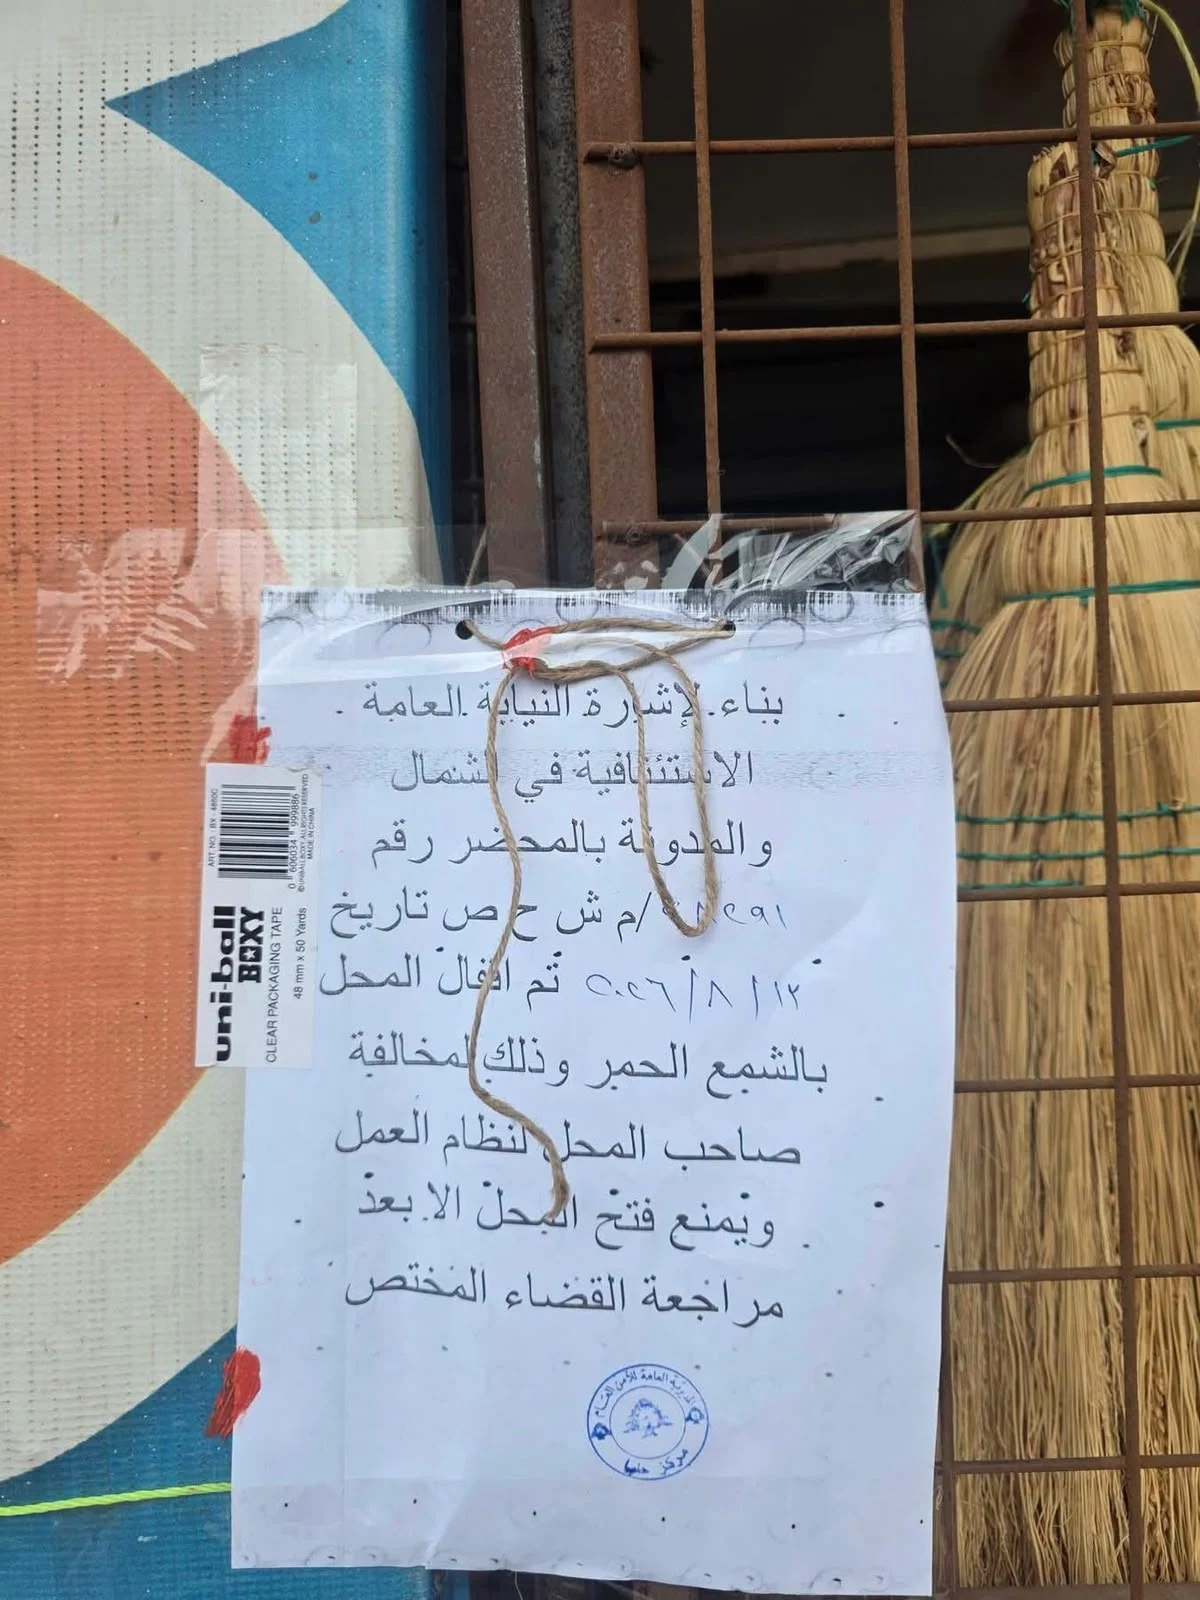 بناء لإشارة النيابة العامة
الاستئنافية في الشمال
والمدونة بالمحضر رقم
/م ش ح ص تاريخ
١٢/٨/٢٠٢٦ تم اقفال المحل
بالشمع الحمر وذلك لمخالفة
صاحب المحل لنظام العمل
ويمنع فتح المحل الا بعد
مراجعة القضاء المختص
المديرية العامة للأمن العام
مركز
uni-ball
BOXY
CLEAR PACKAGING TAPE
48 mm x 50 Yards
ART. NO. : BY - 4850C
0 606034 999886
©UNIBALLBOXY. ALL RIGHTS RESERVED
MADE IN CHINA